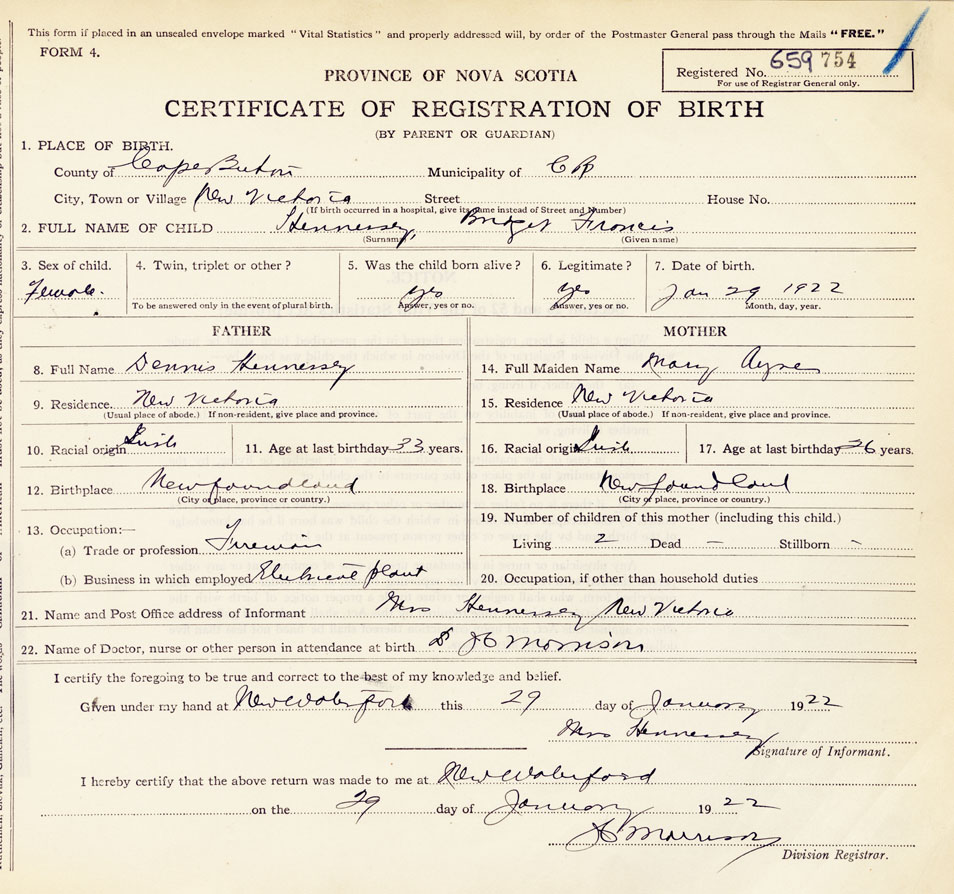 This form if placed in an unsealed envelope marked "Vital Statistics" and properly addressed will, by order of the Postmaster General pass through the Mails "FREE."
FORM 4.
PROVINCE OF NOVA SCOTIA
Registered No. 659 754
For use of Registrar General only.
CERTIFICATE OF REGISTRATION OF BIRTH
(BY PARENT OR GUARDIAN)
1. PLACE OF BIRTH.
County of Cape Breton Municipality of CB
City, Town or Village New Victoria Street House No.
(If birth occurred in a hospital, give its name instead of Street and Number)
2. FULL NAME OF CHILD Hennessey, Bridget Francis
(Surname) (Given name)
3. Sex of child. 4. Twin, triplet or other? 5. Was the child born alive? 6. Legitimate? 7. Date of birth.
Female. yes yes Jan 29 1922
To be answered only in the event of plural birth. Answer, yes or no. Answer, yes or no. Month, day, year.
FATHER MOTHER
8. Full Name Dennis Hennessey 14. Full Maiden Name Mary Ayre
9. Residence. New Victoria 15. Residence New Victoria
(Usual place of abode.) If non-resident, give place and province. (Usual place of abode.) If non-resident, give place and province.
10. Racial origin Irish 11. Age at last birthday 33 years. 16. Racial origin Irish 17. Age at last birthday 26 years.
12. Birthplace Newfoundland 18. Birthplace Newfoundland
(City or place, province or country.) (City or place, province or country.)
13. Occupation:— 19. Number of children of this mother (including this child.)
(a) Trade or profession Fireman Living 2 Dead — Stillborn -
(b) Business in which employed Electrical plant 20. Occupation, if other than household duties
21. Name and Post Office address of Informant Mrs Hennessey New Victoria
22. Name of Doctor, nurse or other person in attendance at birth Dr Morrison
I certify the foregoing to be true and correct to the best of my knowledge and belief.
Given under my hand at New Waterford this 29 day of January 1922
Mrs Hennessey
Signature of Informant.
I hereby certify that the above return was made to me at New Waterford
on the 29 day of January 1922
Morrison
Division Registrar.